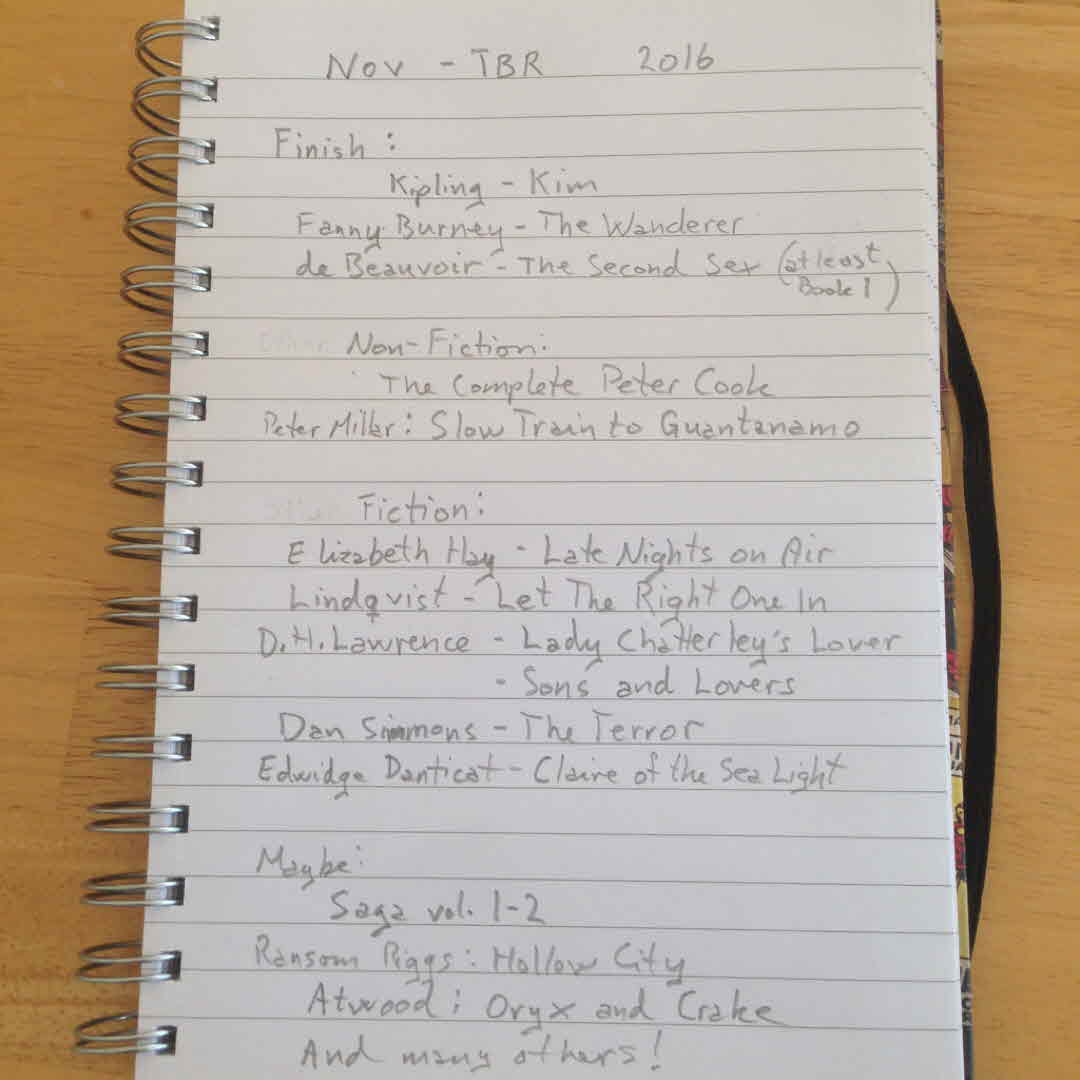 Nov - TBR 2016
Finish :
Kipling - Kim
Fanny Burney - The Wanderer
de Beauvoir - The Second Sex (at least
Book 1)
Non-Fiction:
The Complete Peter Cook
Peter Millar: Slow Train to Guantanamo
Fiction:
Elizabeth Hay - Late Nights on Air
Lindqvist - Let The Right One In
D.H. Lawrence - Lady Chatterley's Lover
- Sons and Lovers
Dan Simmons - The Terror
Edwidge Danticat - Claire of the Sea Light
Maybe:
Saga vol. 1-2
Ransom Riggs: Hollow City
Atwood: Oryx and Crake
And many others!